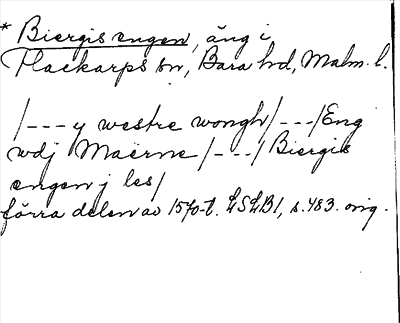 * Biergis engen, äng i
Flackarps sn, Bara hd, Malm. l.
/---y westre wongh/---/Eng
wdj Maerne/---/Biergis
engen j les/
förra delen av 1570-t. LSLB1, s. 483. orig.